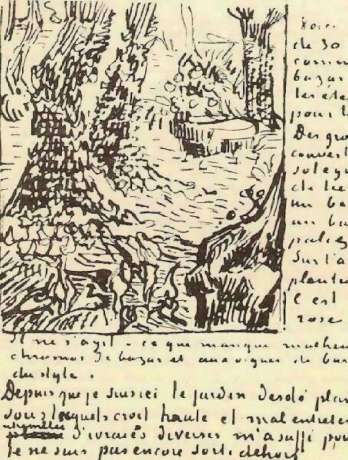 Voici
de 30
comme
bazar
les éte
pour l
Des gro
couvert
sol egu
de lie
un ba
un ba
pales
sur l'a
plante
C est
rose
Il ne s'agit ce que manque malheu
chromos de bazar et aux orgues de bar
du style.
Depuis que je suis ici le jardin desolé plan
sous lesquels croit haute et mal entreten
d'ivraies diverses m'a suffi pou
je ne suis pas encore sorti dehors